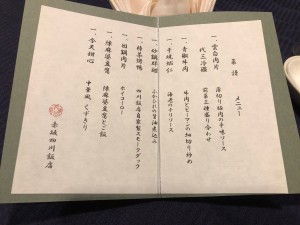 菜譜　メニュー
一、雲白肉片　薄切り豚肉の辛味ソース
代三冷碟　前菜三種盛り合わせ
一、青椒牛肉　牛肉とピーマンの細切り炒め
一、干焼蝦仁　海老のチリソース
一、砂鍋排翅　ふかひれの醤油煮込み
一、樟茶鴨　四川飯店自家製スモークダック
一、回鍋肉片　ホイコーロー
一、陳麻婆豆腐　陳麻婆豆腐とご飯
一、今天甜心　中華風くずきり
赤坂四川飯店